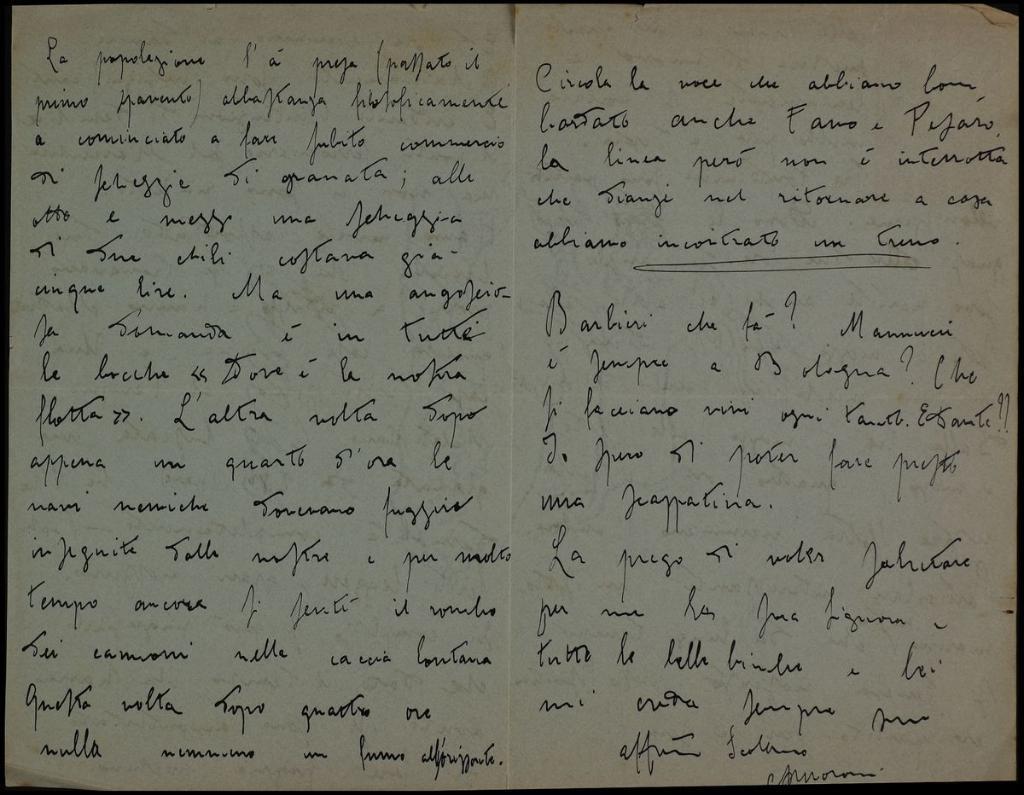 La popolazione l'à presa (passato il
primo spavento) abbastanza filosoficamente
a cominciato a fare subito commercio
di scheggie di granata; alle
otto e mezzo una scheggia
di due chili costava già
cinque lire. Ma una angoscio-
sa domanda è in tutte
le bocche « Dove è la nostra
flotta ». L'altra volta dopo
appena un quarto d'ora le
navi nemiche dovevano fuggire
inseguite dalle nostre e per molto
tempo ancora si sentì il rombo
dei cannoni nella caccia lontana
Questa volta dopo quattro ore
nulla nemmeno un fumo all'orizzonte.
Circola la voce che abbiano bom
bardato anche Fano e Pesaro,
la linea però non è interrotta
che dianzi nel ritornare a casa
abbiamo incontrato un treno.
Barbieri che fà? Mannucci
è sempre a Bologna? Che
si facciano vivi ogni tanto.
Io spero di poter fare presto
una scappatina.
La prego di voler salutare
per me la sua Signora e
tutte le belle bimbe e lei
mi creda sempre suo
affmo Scolaro